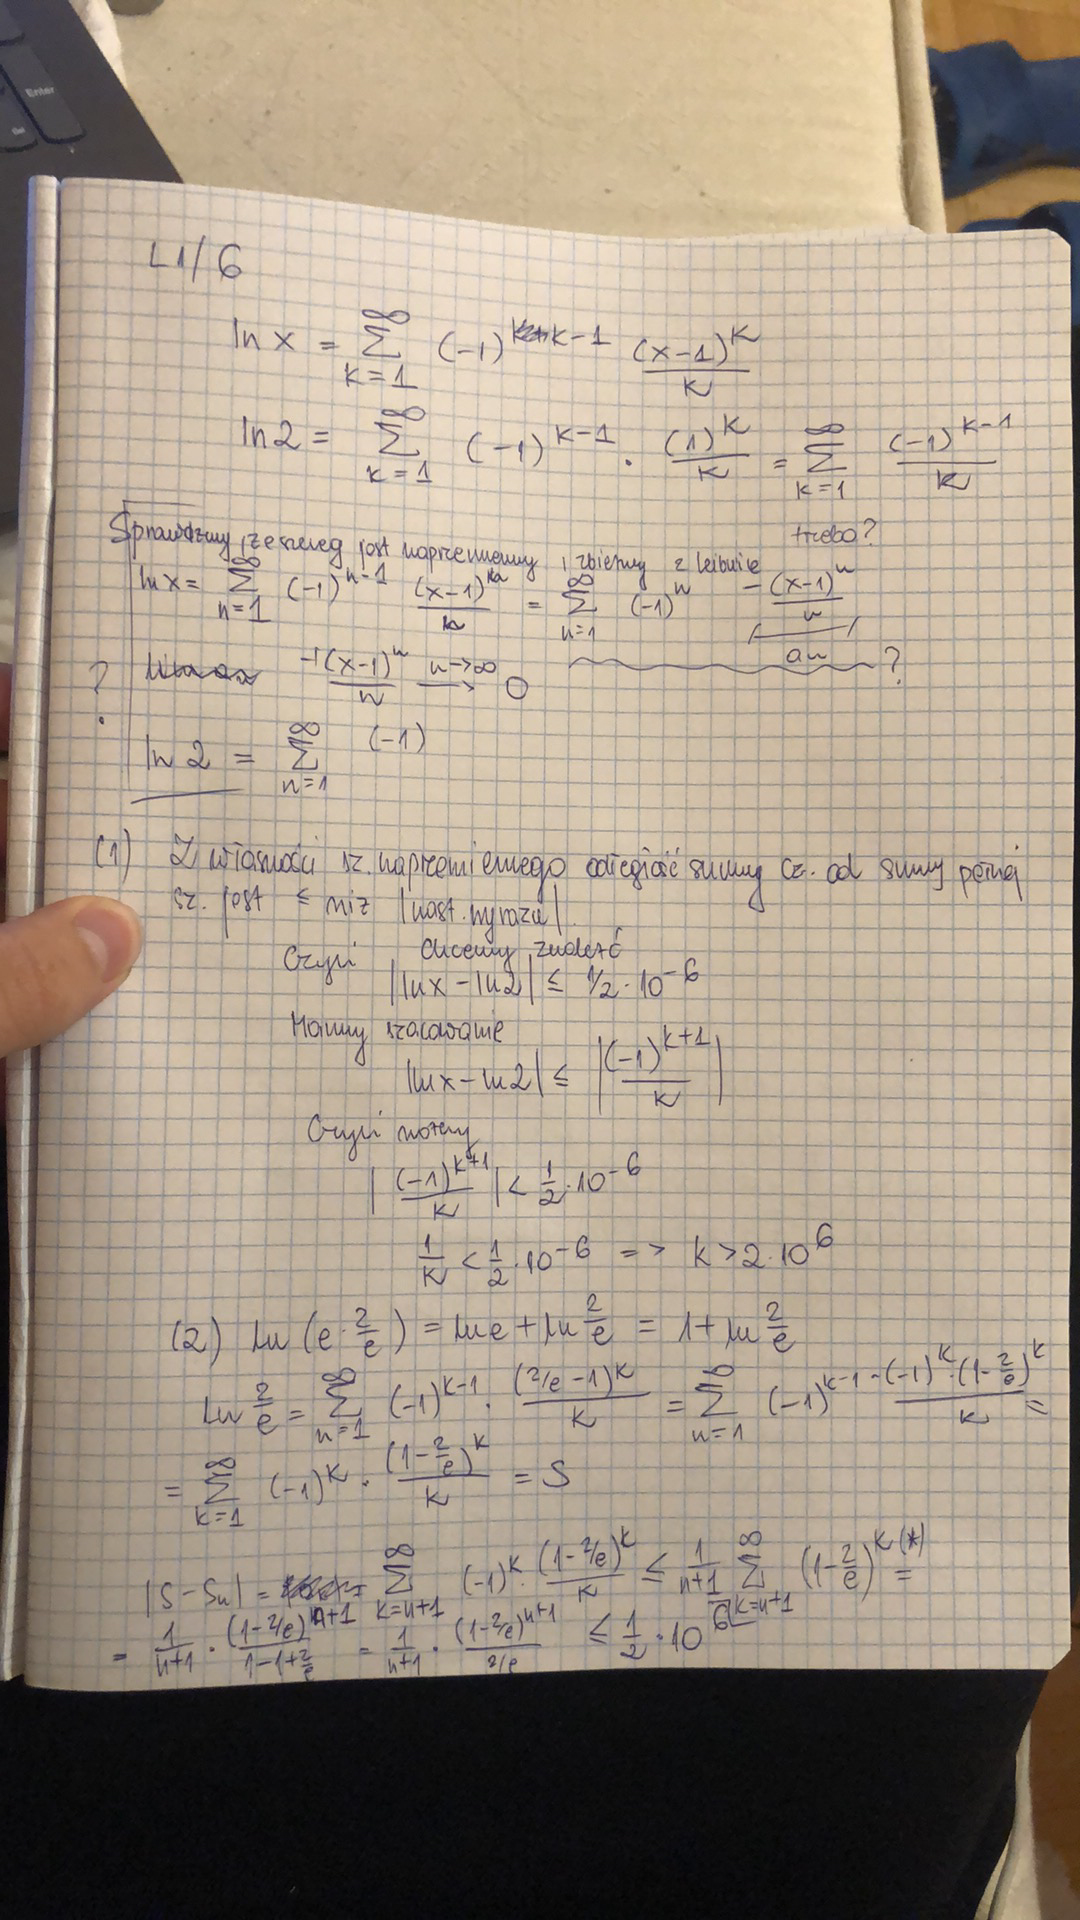 Enter
L1/6
ln x = ∑_{k=1}^{∞} (-1)^{k-1} (x-1)^k / k
ln 2 = ∑_{k=1}^{∞} (-1)^{k-1} · (1)^k / k = ∑_{k=1}^{∞} (-1)^{k-1} / k
trzeba?
Sprawdzmy, że szereg jest naprzemienny i zbieżny z Leibnica
ln x = ∑_{n=1}^{∞} (-1)^{n-1} (x-1)^n / n = ∑_{n=1}^{∞} (-1)^n -(x-1)^n / n
an
? -1(x-1)^n / n n→∞ → 0 ?
ln 2 = ∑_{n=1}^{∞} (-1)
(1) Z własności sz. naprzemiennego odległość sumy cz. od sumy pełnej
sz. jest ≤ niż |nast. wyrazu|.
Czyli chcemy znaleźć
|ln x - ln 2| ≤ 1/2 · 10^{-6}
Mamy szacowanie
|ln x - ln 2| ≤ |(-1)^{k+1} / k|
Czyli
|(-1)^{k+1} / k| < 1/2 · 10^{-6}
1/k < 1/2 · 10^{-6} => k > 2 · 10^6
(2) ln (e · 2/e) = ln e + ln 2/e = 1 + ln 2/e
ln 2/e = ∑_{n=1}^{∞} (-1)^{k-1} · (2/e - 1)^k / k = ∑_{n=1}^{∞} (-1)^{k-1} · (-1)^k · (1 - 2/e)^k / k =
= ∑_{k=1}^{∞} (-1)^k · (1 - 2/e)^k / k = S
|S - Sn| = ∑_{k=n+1}^{∞} (-1)^k · (1 - 2/e)^k / k ≤ 1/(n+1) ∑_{k=n+1}^{∞} (1 - 2/e)^k (*) =
= 1/(n+1) · (1 - 2/e)^{n+1} / (1 - 1 + 2/e) = 1/(n+1) · (1 - 2/e)^{n+1} / (2/e) ≤ 1/2 · 10^{-6}